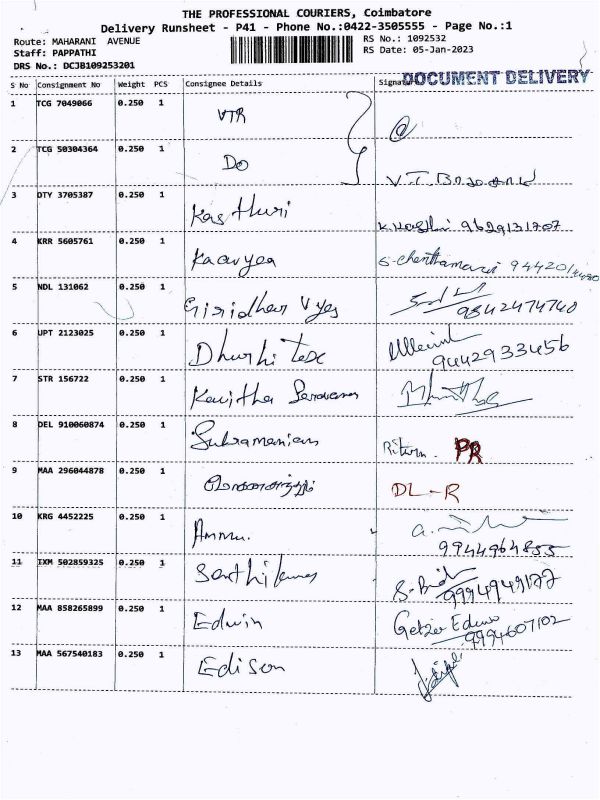 THE PROFESSIONAL COURIERS, Coimbatore
Delivery Runsheet - P41 - Phone No.:0422-3505555 - Page No.:1
Route: MAHARANI AVENUE
RS No.: 1092532
Staff: PAPPATHI
RS Date: 05-Jan-2023
DRS No.: DCJB109253201
DOCUMENT DELIVERY
S No Consignment No Weight PCS Consignee Details
1 TCG 7049066 0.250 1 VTR
2 TCG 50304364 0.250 1 Do
3 DTY 3705387 0.250 1 Kasthuri 9629131707
4 KRR 5605761 0.250 1 Kaavyea S-chenthamarai
5 NDL 131062 0.250 1 Giridhar Vyas 9842474740
6 UPT 2123025 0.250 1 Dhurhi Tex 9442933456
7 STR 156722 0.250 1 Kavitha
8 DEL 910060874 0.250 1 Subramanian Riturn. PR
9 MAA 296044878 0.250 1 DL-R
10 KRG 4452225 0.250 1 Ammu. 9944964855
11 IXM 502859325 0.250 1 Senthilkumar 9994949177
12 MAA 858265899 0.250 1 Edwin 9994607102
13 MAA 567540183 0.250 1 Edison